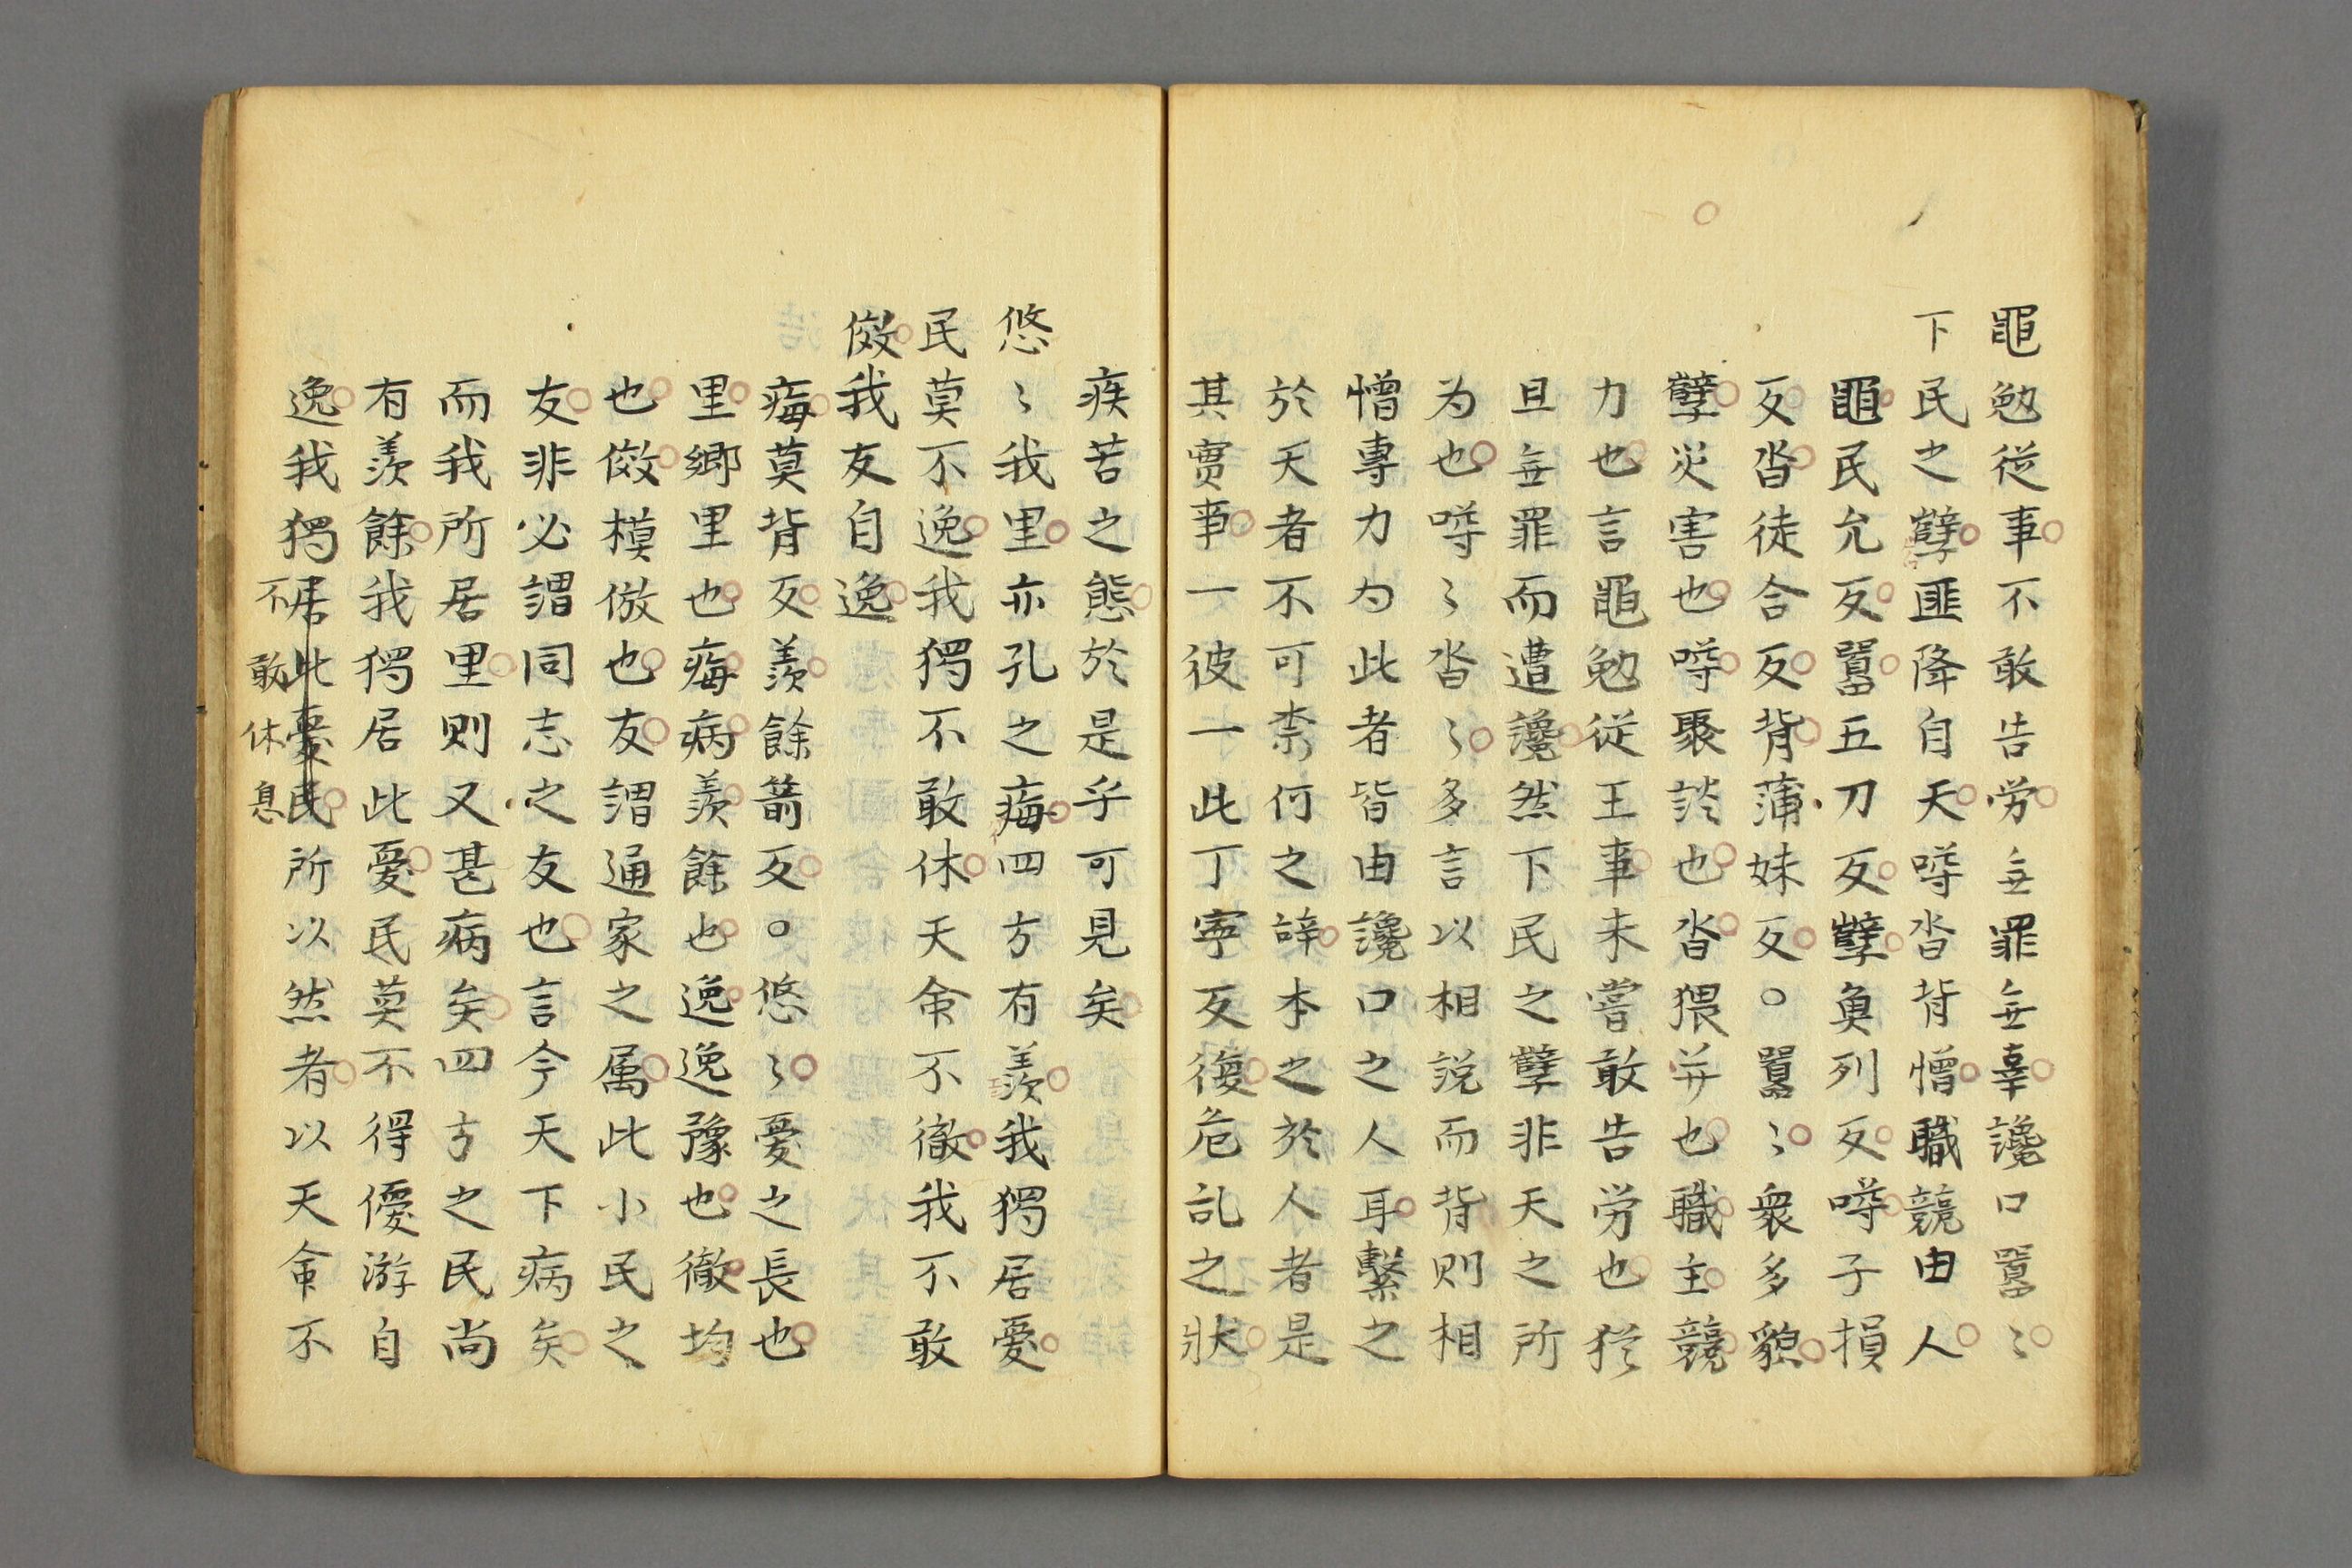 黽勉従事不敢告労無罪無辜讒口囂〻
下民之孽匪降自天噂沓背憎職競由人
黽民允反囂五刀反孽魚列反噂子損
反沓徒合反背蒲妹反○囂〻衆多貌
孽災害也噂聚談也沓猥并也職主競
力也言黽勉従王事未嘗敢告労也猶
且無罪而遭讒然下民之孽非天之所
为也噂〻沓〻多言以相説而背則相
憎專力为此者皆由讒口之人耳繫之
於天者不可柰何之辞本之於人者是
其實事一彼一此丁寧反復危乱之狀
疾苦之態於是乎可見矣
悠〻我里亦孔之痗四方有羨我獨居憂
民莫不逸我獨不敢休天命不徹我不敢
傚我友自逸
痗莫背反羨餘箭反○悠〻憂之長也
里鄉里也痗病羨餘也逸逸豫也徹均
也傚模倣也友謂通家之属此小民之
友非必謂同志之友也言今天下病矣
而我所居里則又甚病矣四方之民尚
有羨餘我獨居此憂民莫不得優游自
逸我獨居此憂民所以然者以天命不
不敢休息